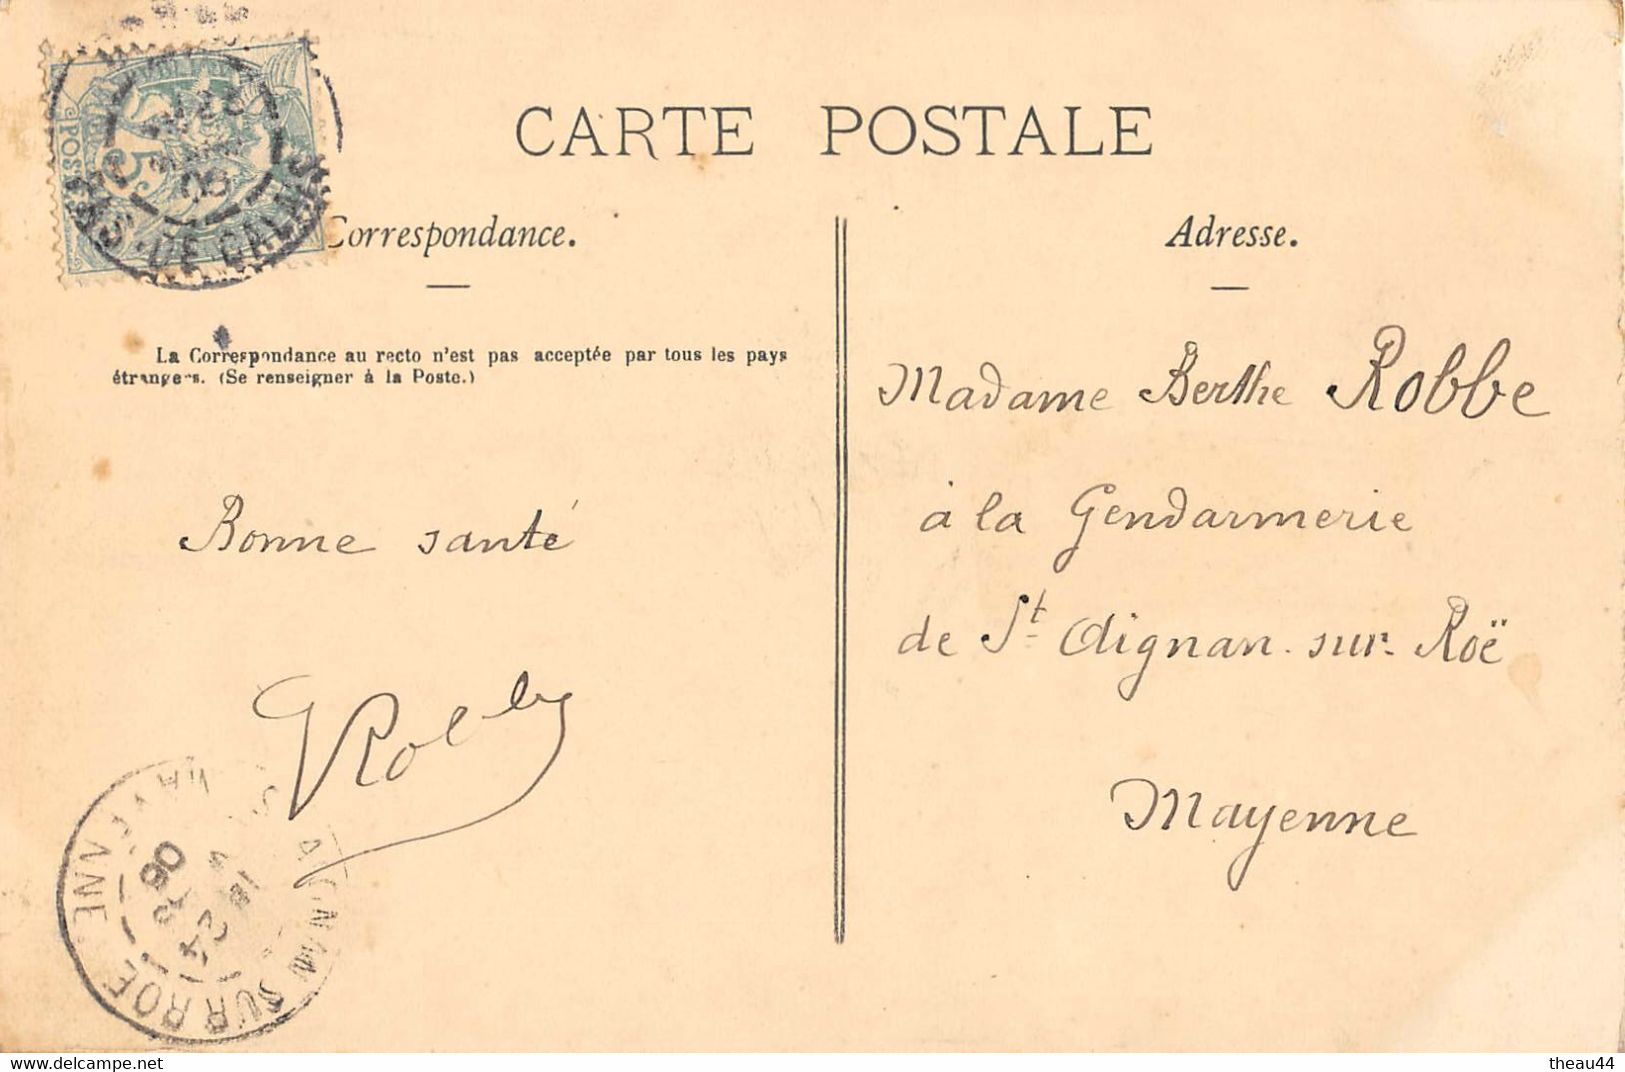 POSTES
5c
05
PAS-DE-CALAIS
CARTE POSTALE
Correspondance.
La Correspondance au recto n'est pas acceptée par tous les pays
étrangers. (Se renseigner à la Poste.)
Bonne santé
Adresse.
Madame Berthe Robbe
à la Gendarmerie
de St Aignan-sur-Roë
Mayenne
ST AIGNAN SUR ROE
MAYENNE
24
theau44